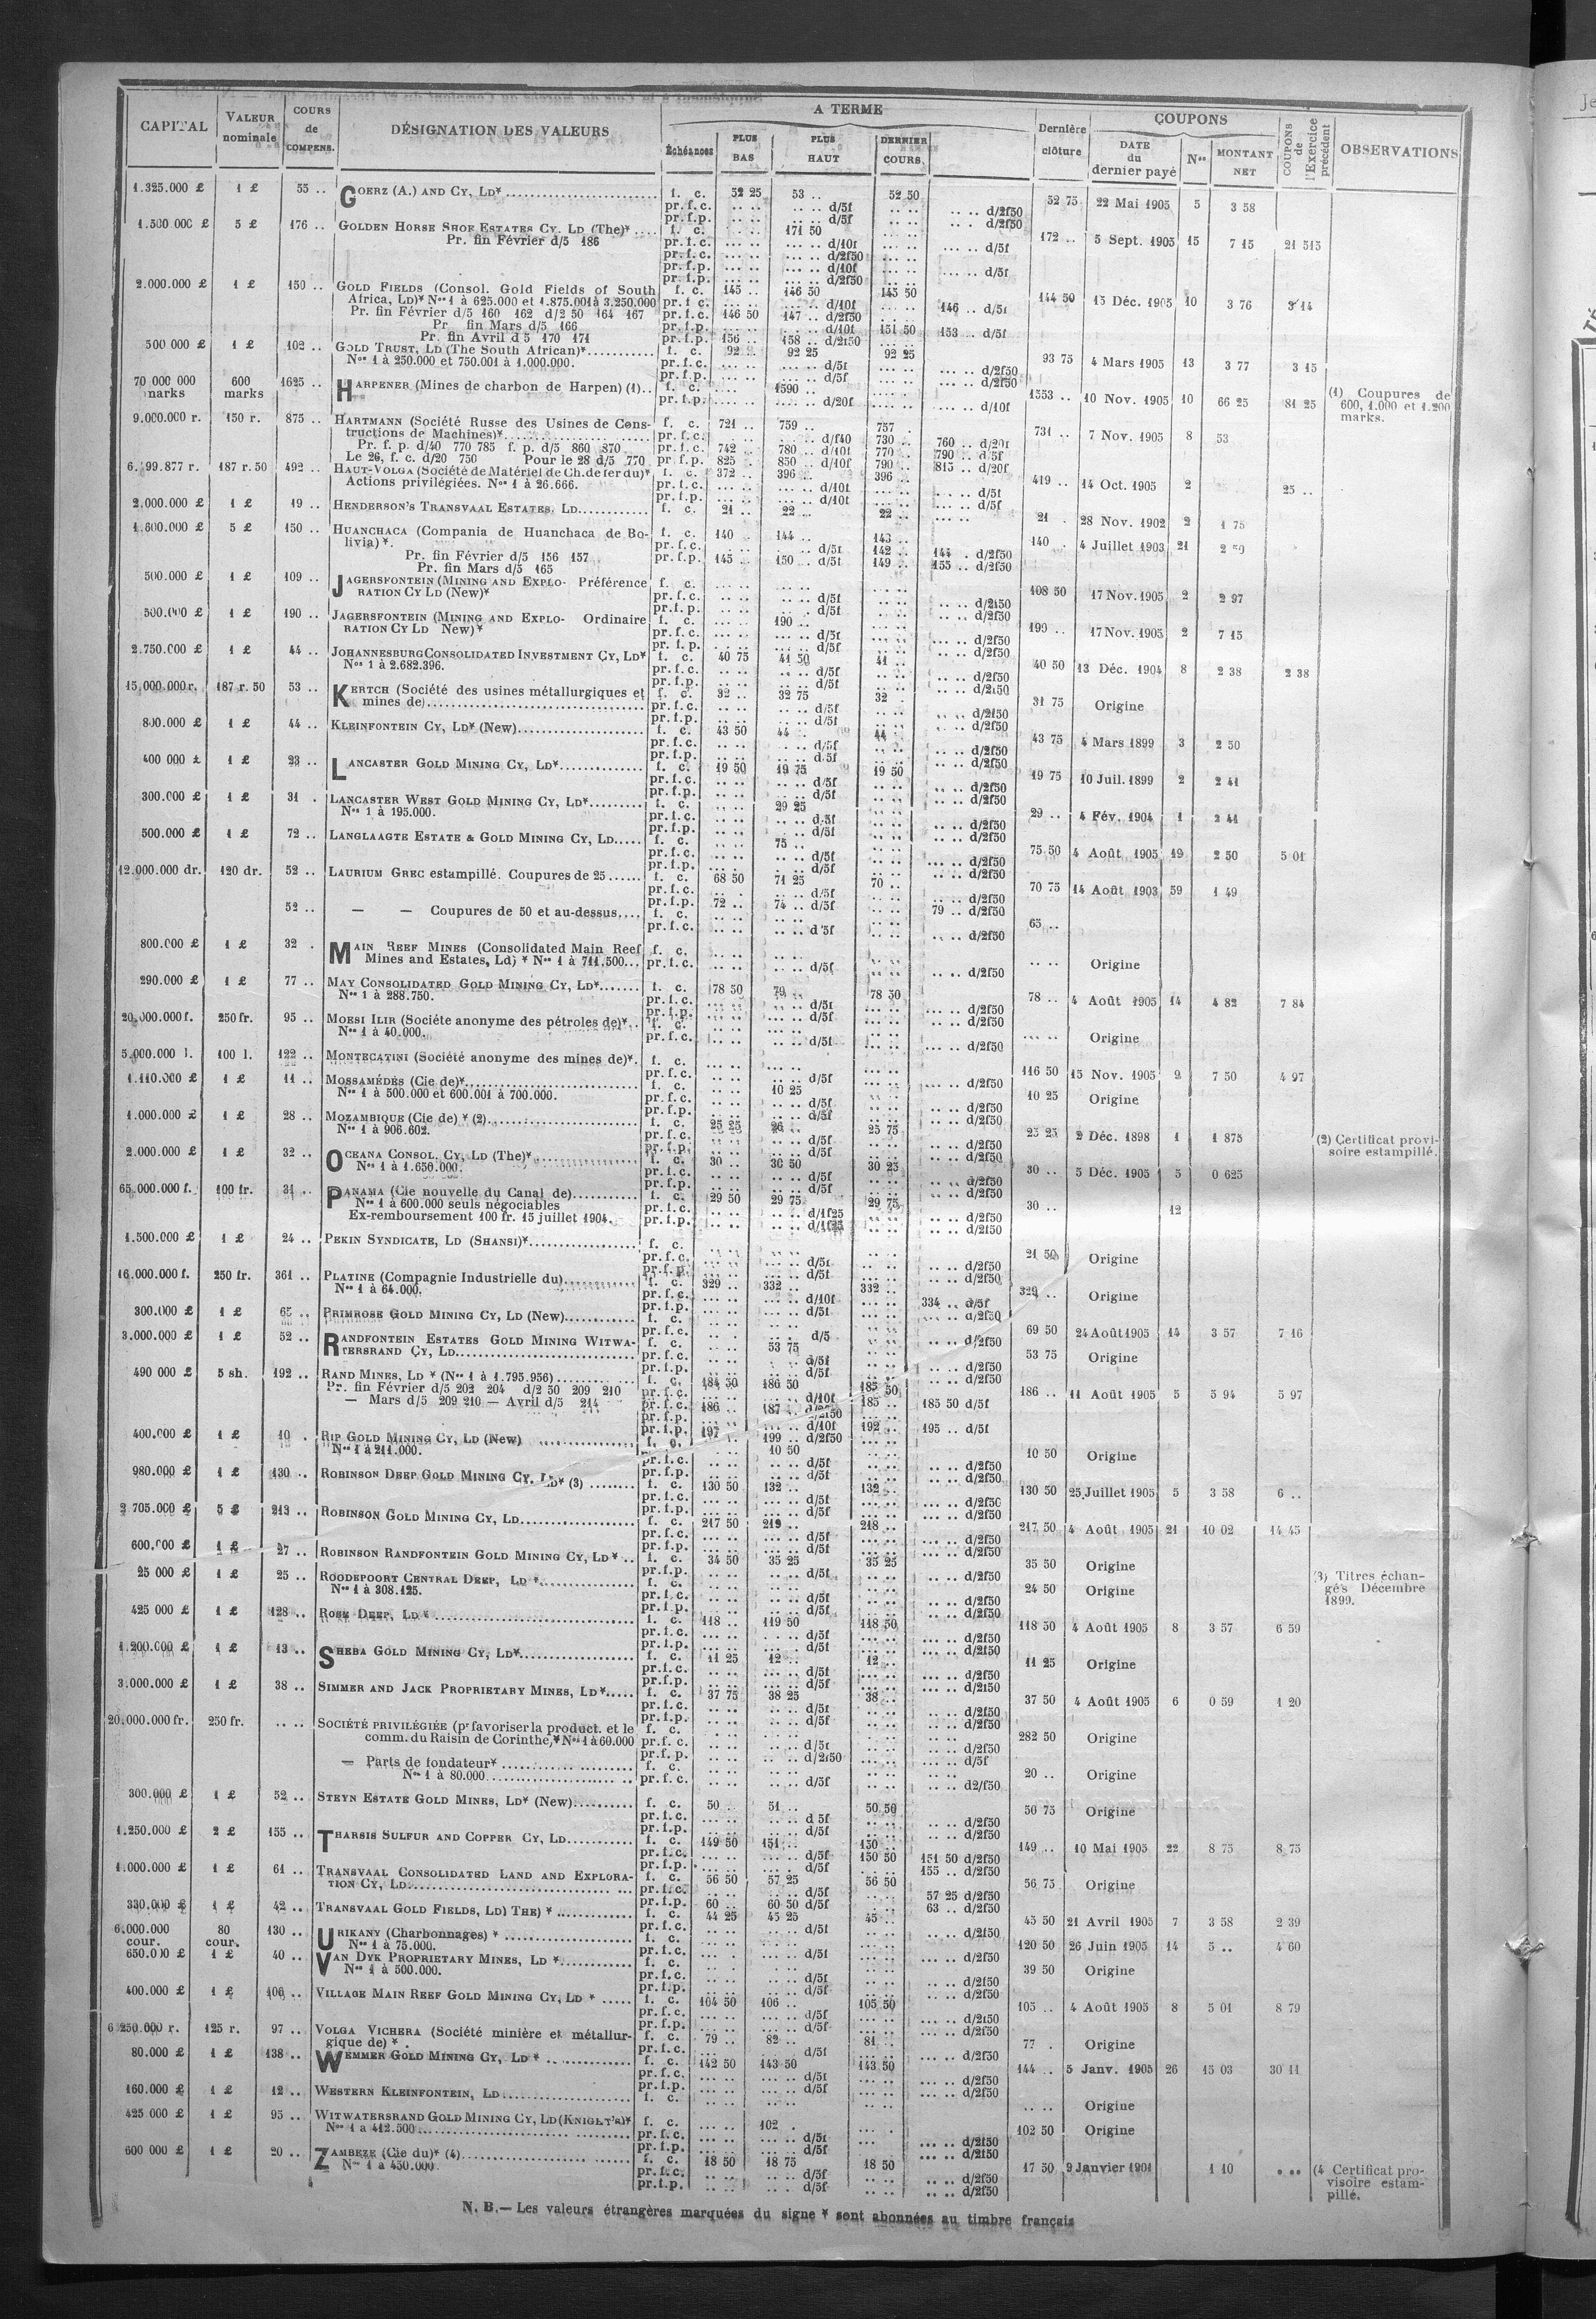 CAPITAL | VALEUR nominale | COURS de COMPENS. | DÉSIGNATION DES VALEURS | A TERME | Dernière clôture | COUPONS | COUPONS de l'Exercice précédent | OBSERVATIONS
Échéances | PLUS BAS | PLUS HAUT | DERNIER COURS | DATE du dernier payé | Nos | MONTANT NET
1.325.000 £ 1 £ 55 .. GOERZ (A.) AND CY, LD* f. c. 52 25 53 .. 52 50 52 75 22 Mai 1905 5 3 58
pr.f.c. d/5f d/2f50
pr.f.p. d/5f d/2f50
1.500 000 £ 5 £ 176 .. GOLDEN HORSE SHOE ESTATES CY. LD (The)* f. c. 171 50 172 .. 5 Sept. 1905 15 7 15 21 515
Pr. fin Février d/5 186 pr.f.c. d/10f d/5f
pr.f.c. d/2f50
pr.f.p. d/10f d/5f
pr.f.p. d/2f50
2.000.000 £ 1 £ 150 .. GOLD FIELDS (Consol. Gold Fields of South f. c. 145 .. 146 50 145 50 144 50 15 Déc. 1905 10 3 76 3 14
Africa, LD)* Nos 1 à 625.000 et 1.875.001 à 3.250.000 pr.f.c. d/10f 146 d/5f
Pr. fin Février d/5 160 162 d/2 50 164 167 pr.f.c. 146 50 147 .. d/2f50
Pr. fin Mars d/5 166 pr.f.p. d/10f 151 50 153 .. d/5f
Pr. fin Avril d 5 170 171 pr.f.p. 156 .. 158 .. d/2f50
500 000 £ 1 £ 102 .. GOLD TRUST, LD (The South African)* f. c. 92 .. 92 25 92 25 93 75 4 Mars 1905 13 3 77 3 15
Nos 1 à 250.000 et 750.001 à 1.000.000. pr.f.c. d/5f d/2f50
pr.f.p. d/5f d/2f50
70 000 000 marks 600 marks 1625 .. HARPENER (Mines de charbon de Harpen) (1).. f. c. 1590 .. 1553 .. 10 Nov. 1905 10 66 25 81 25 (1) Coupures de 600, 1.000 et 1.200 marks.
pr.f.p. d/20f d/10f
9.000.000 r. 150 r. 875 .. HARTMANN (Société Russe des Usines de Cons- f. c. 721 .. 759 .. 757 731 .. 7 Nov. 1905 8 53
tructions de Machines)* pr.f.c. d/f40 730 .. 760 .. d/20f
Pr. f. p. d/40 770 785 f. p. d/5 860 870 pr.f.c. 742 .. 780 .. d/10f 770 .. 790 .. d/5f
Le 26, f. c. d/20 750 Pour le 28 d/5 770 pr.f.p. 825 .. 850 .. d/10f 790 .. 815 .. d/20f
187 r. 50 492 .. HAUT-VOLGA (Société de Matériel de Ch. de fer du)* f. c. 372 .. 396 .. 396 .. 419 .. 14 Oct. 1905 2 25 ..
Actions privilégiées. Nos 1 à 26.666. pr.f.c. d/10f d/5f
pr.f.p. d/10f d/5f
2.000.000 £ 1 £ 19 .. HENDERSON'S TRANSVAAL ESTATES. LD f. c. 21 .. 22 .. 22 .. 21 . 28 Nov. 1902 2 1 75
1.600.000 £ 5 £ 150 .. HUANCHACA (Compania de Huanchaca de Bo- f. c. 140 .. 144 .. 143 .. 140 . 4 Juillet 1903 21 2 50
livia)*. pr.f.c. d/5f 142 .. 144 . d/2f50
Pr. fin Février d/5 156 157 pr.f.p. 145 .. 150 .. d/5f 149 .. 155 .. d/2f50
Pr. fin Mars d/5 165
500.000 £ 1 £ 109 .. JAGERSFONTEIN (MINING AND EXPLO- Préférence f. c. 108 50 17 Nov. 1905 2 2 97
RATION CY LD (New)* pr.f.c. d/5f d/2f50
pr.f.p. d/5f d/2f50
500.000 £ 1 £ 190 .. JAGERSFONTEIN (MINING AND EXPLO- Ordinaire f. c. 190 .. 190 .. 17 Nov. 1905 2 7 15
RATION CY LD New)* pr.f.c. d/5f d/2f50
pr.f.p. d/5f d/2f50
2.750.000 £ 1 £ 44 .. JOHANNESBURG CONSOLIDATED INVESTMENT CY, LD* f. c. 40 75 41 50 41 .. 40 50 13 Déc. 1904 8 2 38 2 38
Nos 1 à 2.682.396. pr.f.c. d/5f d/2f50
pr.f.p. d/5f d/2f50
15.000.000 r. 187 r. 50 53 .. KERTCH (Société des usines métallurgiques et f. c. 32 .. 32 75 32 . 31 75 Origine
mines de) pr.f.c. d/5f d/2f50
pr.f.p. d/5f d/2f50
800.000 £ 1 £ 44 .. KLEINFONTEIN CY, LD* (New) f. c. 43 50 44 .. 44 .. 43 75 4 Mars 1899 3 2 50
pr.f.c. d/5f d/2f50
pr.f.p. d/5f d/2f50
400 000 £ 1 £ 23 .. LANCASTER GOLD MINING CY, LD* f. c. 19 50 19 75 19 50 19 75 10 Juil. 1899 2 2 41
pr.f.c. d/5f d/2f50
pr.f.p. d/5f d/2f50
300.000 £ 1 £ 31 . LANCASTER WEST GOLD MINING CY, LD* f. c. 29 25 29 .. 4 Fév. 1904 1 2 41
Nos 1 à 195.000. pr.f.c. d/5f d/2f50
pr.f.p. d/5f d/2f50
500.000 £ 1 £ 72 .. LANGLAAGTE ESTATE & GOLD MINING CY, LD f. c. 75 .. 75 50 4 Août 1905 19 2 50 5 01
pr.f.c. d/5f d/2f50
pr.f.p. d/5f d/2f50
12.000.000 dr. 120 dr. 52 .. LAURIUM GREC estampillé. Coupures de 25 f. c. 68 50 71 25 70 .. 70 75 14 Août 1903 59 1 49
pr.f.c. d/5f d/2f50
pr.f.p. 72 .. 74 .. d/5f 79 .. d/2f50
52 .. — — Coupures de 50 et au-dessus f. c. 65 ..
pr.f.c. d/5f d/2f50
800.000 £ 1 £ 32 . MAIN REEF MINES (Consolidated Main Reef f. c. Origine
Mines and Estates, Ld) * Nos 1 à 711.500 pr.f.c. d/5f d/2f50
290.000 £ 1 £ 77 .. MAY CONSOLIDATED GOLD MINING CY, LD* f. c. 78 50 79 .. 78 50 78 .. 4 Août 1905 14 4 82 7 84
Nos 1 à 288.750. pr.f.c. d/5f d/2f50
pr.f.p. d/5f d/2f50
20.000.000 f. 250 fr. 95 .. MOESI ILIR (Sociéte anonyme des pétroles de)* f. c. Origine
Nos 1 à 40.000. pr.f.c. d/5f d/2f50
5.000.000 l. 100 l. 122 .. MONTECATINI (Société anonyme des mines de)*. f. c. 116 50 15 Nov. 1905 2 7 50 4 97
pr.f.c. d/5f d/2f50
1.110.000 £ 1 £ 11 .. MOSSAMÉDÈS (Cie de)* f. c. 10 25 10 25 Origine
Nos 1 à 500.000 et 600.001 à 700.000. pr.f.c. d/5f d/2f50
pr.f.p. d/5f d/2f50
1.000.000 £ 1 £ 28 .. MOZAMBIQUE (Cie de) * (2) f. c. 25 25 26 .. 25 75 25 25 2 Déc. 1898 1 1 875 (2) Certificat provisoire estampillé.
Nos 1 à 906.602. pr.f.c. d/5f d/2f50
pr.f.p. d/5f d/2f50
2.000.000 £ 1 £ 32 .. OCEANA CONSOL. CY, LD (The)* f. c. 30 .. 30 50 30 25 30 .. 5 Déc. 1905 5 0 625
Nos 1 à 1.650.000. pr.f.c. d/5f d/2f50
pr.f.p. d/5f d/2f50
65.000.000 f. 100 fr. 31 .. PANAMA (Cie nouvelle du Canal de) f. c. 29 50 29 75 29 75 30 .. 12
Nos 1 à 600.000 seuls négociables pr.f.c. d/1f25 d/2f50
Ex-remboursement 100 fr. 15 juillet 1904. pr.f.p. d/1f25 d/2f50
1.500.000 £ 1 £ 24 .. PEKIN SYNDICATE, LD (SHANSI)* f. c. 21 50 Origine
pr.f.c. d/5f d/2f50
pr.f.p. d/5f d/2f50
16.000.000 f. 250 fr. 361 .. PLATINE (Compagnie Industrielle du) f. c. 329 .. 332 .. 332 .. 329 .. Origine
Nos 1 à 64.000. pr.f.c. d/10f 334 .. d/5f
pr.f.p. d/5f d/2f50
300.000 £ 1 £ 65 .. PRIMROSE GOLD MINING CY, LD (New) f. c. 69 50 24 Août 1905 14 3 57 7 16
pr.f.c. d/5 d/2f50
3.000.000 £ 1 £ 52 .. RANDFONTEIN ESTATES GOLD MINING WITWA- f. c. 53 75 53 75 Origine
TERSRAND CY, LD pr.f.c. d/5f d/2f50
pr.f.p. d/5f d/2f50
490 000 £ 5 sh. 192 .. RAND MINES, LD * (Nos 1 à 1.795.956) f. c. 184 50 186 50 185 50 186 .. 11 Août 1905 5 5 94 5 97
Pr. fin Février d/5 202 204 d/2 50 209 210 pr.f.c. d/10f 185 .. 185 50 d/5f
— Mars d/5 209 210 — Avril d/5 214 pr.f.c. 186 .. 187 .. d/2f50
pr.f.p. d/10f 192 .. 195 .. d/5f
pr.f.p. 197 199 .. d/2f50
400.000 £ 1 £ 10 . RIP GOLD MINING CY, LD (New) f. c. 10 50 10 50 Origine
Nos 1 à 211.000. pr.f.c. d/5f d/2f50
pr.f.p. d/5f d/2f50
980.000 £ 1 £ 130 .. ROBINSON DEEP GOLD MINING CY. LD* (3) f. c. 130 50 132 .. 132 .. 130 50 25 Juillet 1905 5 3 58 6 ..
pr.f.c. d/5f d/2f50
pr.f.p. d/5f d/2f50
2 705.000 £ 5 £ 213 .. ROBINSON GOLD MINING CY, LD f. c. 217 50 219 .. 218 .. 217 50 4 Août 1905 21 10 02 14 45
pr.f.c. d/5f d/2f50
pr.f.p. d/5f d/2f50
600.000 £ 1 £ 27 .. ROBINSON RANDFONTEIN GOLD MINING CY, LD * f. c. 34 50 35 25 35 25 35 50 Origine
pr.f.p. d/5f d/2f50
25 000 £ 1 £ 25 .. ROODEPOORT CENTRAL DEEP, LD * f. c. 24 50 Origine (3) Titres échangés Décembre 1899.
Nos 1 à 308.125. pr.f.c. d/5f d/2f50
pr.f.p. d/5f d/2f50
425 000 £ 1 £ 128 .. ROSE DEEP, LD * f. c. 118 .. 119 50 118 50 118 50 4 Août 1905 8 3 57 6 59
pr.f.c. d/5f d/2f50
pr.f.p. d/5f d/2f50
1.200.000 £ 1 £ 13 .. SHEBA GOLD MINING CY, LD* f. c. 11 25 12 .. 12 .. 11 25 Origine
pr.f.c. d/5f d/2f50
pr.f.p. d/5f d/2f50
3.000.000 £ 1 £ 38 .. SIMMER AND JACK PROPRIETARY MINES, LD* f. c. 37 75 38 25 38 .. 37 50 4 Août 1905 6 0 59 1 20
pr.f.c. d/5f d/2f50
pr.f.p. d/5f d/2f50
20.000.000 fr. 250 fr. .. .. SOCIÉTÉ PRIVILÉGIÉE (pr favoriser la product. et le f. c. 282 50 Origine
comm. du Raisin de Corinthe,* Nos 1 à 60.000 pr.f.c. d/5f d/2f50
pr.f.p. d/2f50 d/5f
— Parts de fondateur* f. c. 20 .. Origine
Nos 1 à 80.000 pr.f.c. d/5f d2/f50
300.000 £ 1 £ 52 .. STEYN ESTATE GOLD MINES, LD* (New) f. c. 50 .. 51 .. 50 50 50 75 Origine
pr.f.c. d 5f d/2f50
pr.f.p. d/5f d/2f50
1.250.000 £ 2 £ 155 .. THARSIS SULFUR AND COPPER CY, LD f. c. 149 50 151 .. 150 .. 149 .. 10 Mai 1905 22 8 75 8 75
pr.f.c. d/5f 150 50 151 50 d/2f50
pr.f.p. d/5f 155 .. d/2f50
1.000.000 £ 1 £ 61 .. TRANSVAAL CONSOLIDATED LAND AND EXPLORA- f. c. 56 50 57 25 56 50 56 75 Origine
TION CY, LD pr.f.c. d/5f 57 25 d/2f50
pr.f.p. 60 .. 60 50 d/5f 63 .. d/2f50
330.000 £ 1 £ 42 .. TRANSVAAL GOLD FIELDS, LD) THE) * f. c. 44 25 45 25 45 .. 45 50 21 Avril 1905 7 3 58 2 39
pr.f.c. d/5f d/2f50
6.000.000 cour. 80 cour. 130 .. URIKANY (Charbonnages) * f. c. 120 50 26 Juin 1905 14 5 .. 4 60
Nos 1 à 75.000. pr.f.c. d/5f d/2f50
650.000 £ 1 £ 40 .. VAN DYK PROPRIETARY MINES, LD * f. c. 39 50 Origine
Nos 1 à 500.000. pr.f.c. d/5f d/2f50
pr.f.p. d/5f d/2f50
400.000 £ 1 £ 100 .. VILLAGE MAIN REEF GOLD MINING CY, LD * f. c. 104 50 106 .. 105 50 105 .. 4 Août 1905 8 5 01 8 79
pr.f.c. d/5f d/2f50
pr.f.p. d/5f d/2f50
6 250.000 r. 125 r. 97 .. VOLGA VICHERA (Société minière et métallur- f. c. 79 .. 82 .. 81 .. 77 . Origine
gique de) * pr.f.c. d/5f d/2f50
80.000 £ 1 £ 138 .. WEMMER GOLD MINING CY, LD * f. c. 142 50 143 50 143 50 144 .. 5 Janv. 1905 26 15 03 30 11
pr.f.c. d/5f d/2f50
pr.f.p. d/5f d/2f50
160.000 £ 1 £ 12 .. WESTERN KLEINFONTEIN, LD f. c. Origine
425 000 £ 1 £ 95 .. WITWATERSRAND GOLD MINING CY, LD (KNIGHT'S)* f. c. 102 102 50 Origine
Nos 1 a 412.500 pr.f.c. d/5f d/2f50
pr.f.p. d/5f d/2f50
600 000 £ 1 £ 20 .. ZAMBEZE (Cie du)* (4) f. c. 18 50 18 75 18 50 17 50 9 Janvier 1901 1 10 (4 Certificat provisoire estampillé.
Nos 1 à 450.000. pr.f.c. d/5f d/2f50
pr.f.p. d/5f d/2f50
N. B. — Les valeurs étrangères marquées du signe * sont abonnées au timbre français